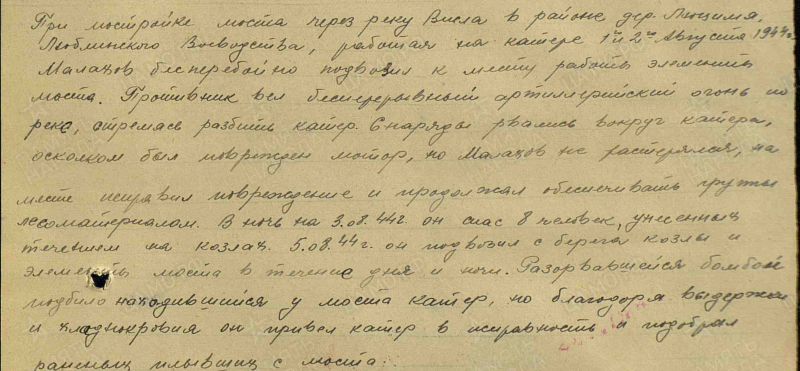 При постройке моста через реку Висла в районе дер. Люцимя,
Люблинского Воеводства, работая на катере 1 и 2го Августа 1944г.
Малахов бесперебойно подвозил к месту работы элементы
моста. Противник вел беспрерывный артиллерийский огонь по
реке, стремясь разбить катер. Снаряды рвались вокруг катера,
осколком был поврежден мотор, но Малахов не растерялся, на
месте исправил повреждение и продолжал обеспечивать группы
лесоматериалом. В ночь на 3.08.44г. он спас 8 человек, унесенных
течением на козлах. 5.08.44г. он подвозил с берега козлы и
элементы моста в течение дня и ночи. Разорвавшейся бомбой
подбило находившийся у моста катер, но благодоря выдержки
и хладнокровия он привел катер в исправность и подобрал
раненых плывших с моста.